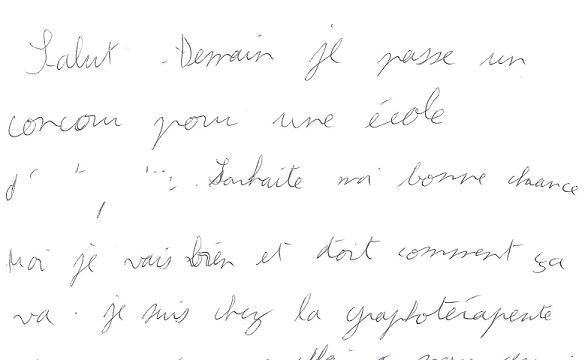 Salut. Demain je passe un
concour pour une école
d' Souhaite moi bonne chance
Moi je vais bien et doit comment ça
va. je suis chez la graphotérapente